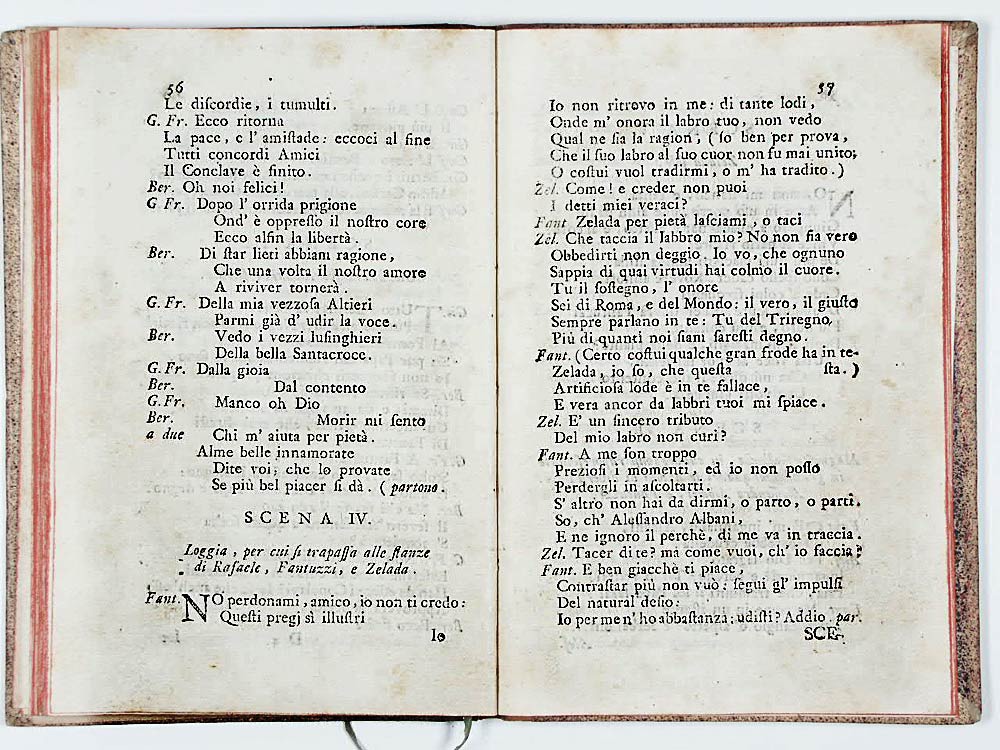 56
Le diſcordie, i tumulti.
G. Fr. Ecco ritorna
La pace, e l' amiſtade: eccoci al fine
Tutti concordi Amici
Il Conclave è finito.
Ber. Oh noi felici!
G. Fr. Dopo l' orrida prigione
Ond' è oppreſſo il noſtro core
Ecco alfin la libertà.
Ber. Di ſtar lieti abbiam ragione,
Che una volta il noſtro amore
A riviver tornerà.
G. Fr. Della mia vezzoſa Altieri
Parmi già d' udir la voce.
Ber. Vedo i vezzi luſinghieri
Della bella Santacroce.
G. Fr. Dalla gioia
Ber. Dal contento
G. Fr. Manco oh Dio
Ber. Morir mi ſento
a due Chi m' aiuta per pietà.
Alme belle innamorate
Dite voi, che lo provate
Se più bel piacer ſi dà. (partono.
SCENA IV.
Loggia, per cui ſi trapaſſa alle ſtanze
di Rafaele, Fantuzzi, e Zelada.
Fant. NO perdonami, amico, io non ti credo:
Queſti pregj sì illuſtri
Io
57
Io non ritrovo in me: di tante lodi,
Onde m' onora il labro tuo, non vedo
Qual ne ſia la ragion, (ſo ben per prova,
Che il ſuo labro al ſuo cuor non fu mai unito;
O coſtui vuol tradirmi, o m' ha tradito.)
Zel. Come! e creder non puoi
I detti miei veraci?
Fant Zelada per pietà laſciami, o taci
Zel. Che taccia il labbro mio? No non ſia vero
Obbedirti non deggio. Io vo, che ognuno
Sappia di quai virtudi hai colmo il cuore.
Tu il ſoſtegno, l' onore
Sei di Roma, e del Mondo: il vero, il giuſto
Sempre parlano in te: Tu del Triregno,
Più di quanti noi ſiam ſareſti degno.
Fant. (Certo coſtui qualche gran frode ha in te-
Zelada, io ſo, che queſta ſta.)
Artificioſa lode è in te fallace,
E vera ancor da labbri tuoi mi ſpiace.
Zel. E' un ſincero tributo
Del mio labro non curi?
Fant. A me ſon troppo
Prezioſi i momenti, ed io non poſſo
Perdergli in aſcoltarti.
S' altro non hai da dirmi, o parto, o parti.
So, ch' Aleſſandro Albani,
E ne ignoro il perchè, di me va in traccia.
Zel. Tacer di te? ma come vuoi, ch' io faccia?
Fant. E ben giacchè ti piace,
Contraſtar più non vuò: ſegui gl' impulſi
Del natural deſio:
Io per me n' ho abbaſtanza; udiſti? Addio. par.
SCE-